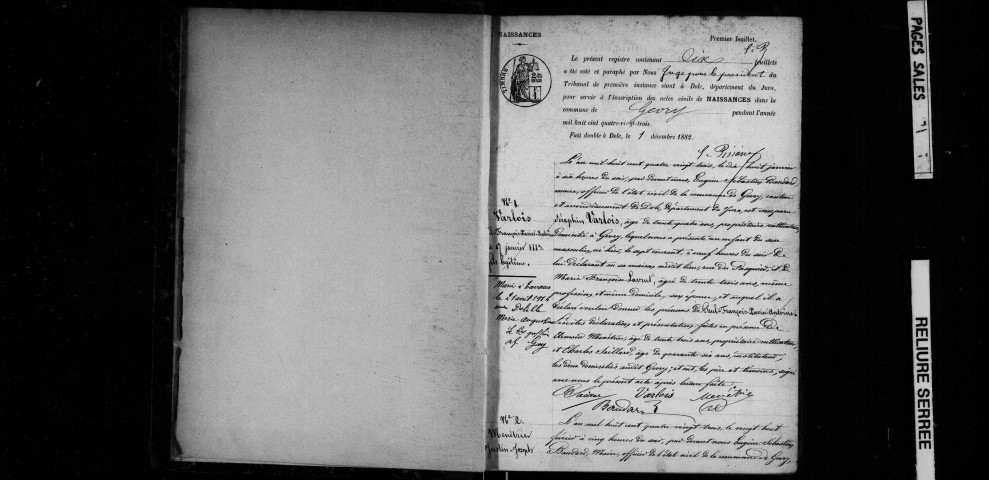 NAISSANCES
Premier feuillet.
Le présent registre contenant Dix feuillets
a été coté et paraphé par Nous Juge pour le président du
Tribunal de première instance séant à Dole, département du Jura,
pour servir à l'inscription des actes civils de NAISSANCES dans la
commune de Gevry pendant l'année
mil huit cent quatre-vingt-trois.
Fait double à Dole, le 1 décembre 1882.
L'an mil huit cent quatre vingt trois, le dix huit janvier
à six heures du soir, par devant nous, Eugène Sébastien Baudard
maire, officier de l'état civil de la commune de Gevry, canton
et arrondissement de Dole, département du Jura, est comparu
Séraphin Varlois, âgé de trente quatre ans, propriétaire cultivateur,
domicilié à Gevry, lequel nous a présenté un enfant du sexe
masculin, né hier, le sept courant, à neuf heures du soir De
lui déclarant en sa maison audit lieu, rue du Pasquier, et de
Marie Françoise, âgée de trente trois ans, même
profession et même domicile, son épouse, et auquel il a
déclaré vouloir donner les prénoms de Paul-François-Xavier-Antoine.
Lesdites déclaration et présentation faites en présence de
Armand Ménétrier, âgé de trente trois ans, propriétaire cultivateur,
et Charles Saillard, âgé de quarante six ans, instituteur,
les deux domiciliés audit Gevry; et ont, les père et témoins, signé
avec nous le présent acte après lecture faite.
Varlois
Baudard
N° 1.
Varlois
Paul-François-Xavier-Antoine
17 janvier 1883.
légitime.
Marié à
le 21 avril 1914
avec
Marie Augustine
Gevry
N° 2.
Ménétrier
Justin-Joseph
L'an mil huit cent quatre vingt trois, le vingt huit
février à cinq heures du soir, par devant nous Eugène Sébastien
Baudard, Maire, officier de l'état civil de la commune de Gevry,
PAGES SALES
RELIURE SERREE